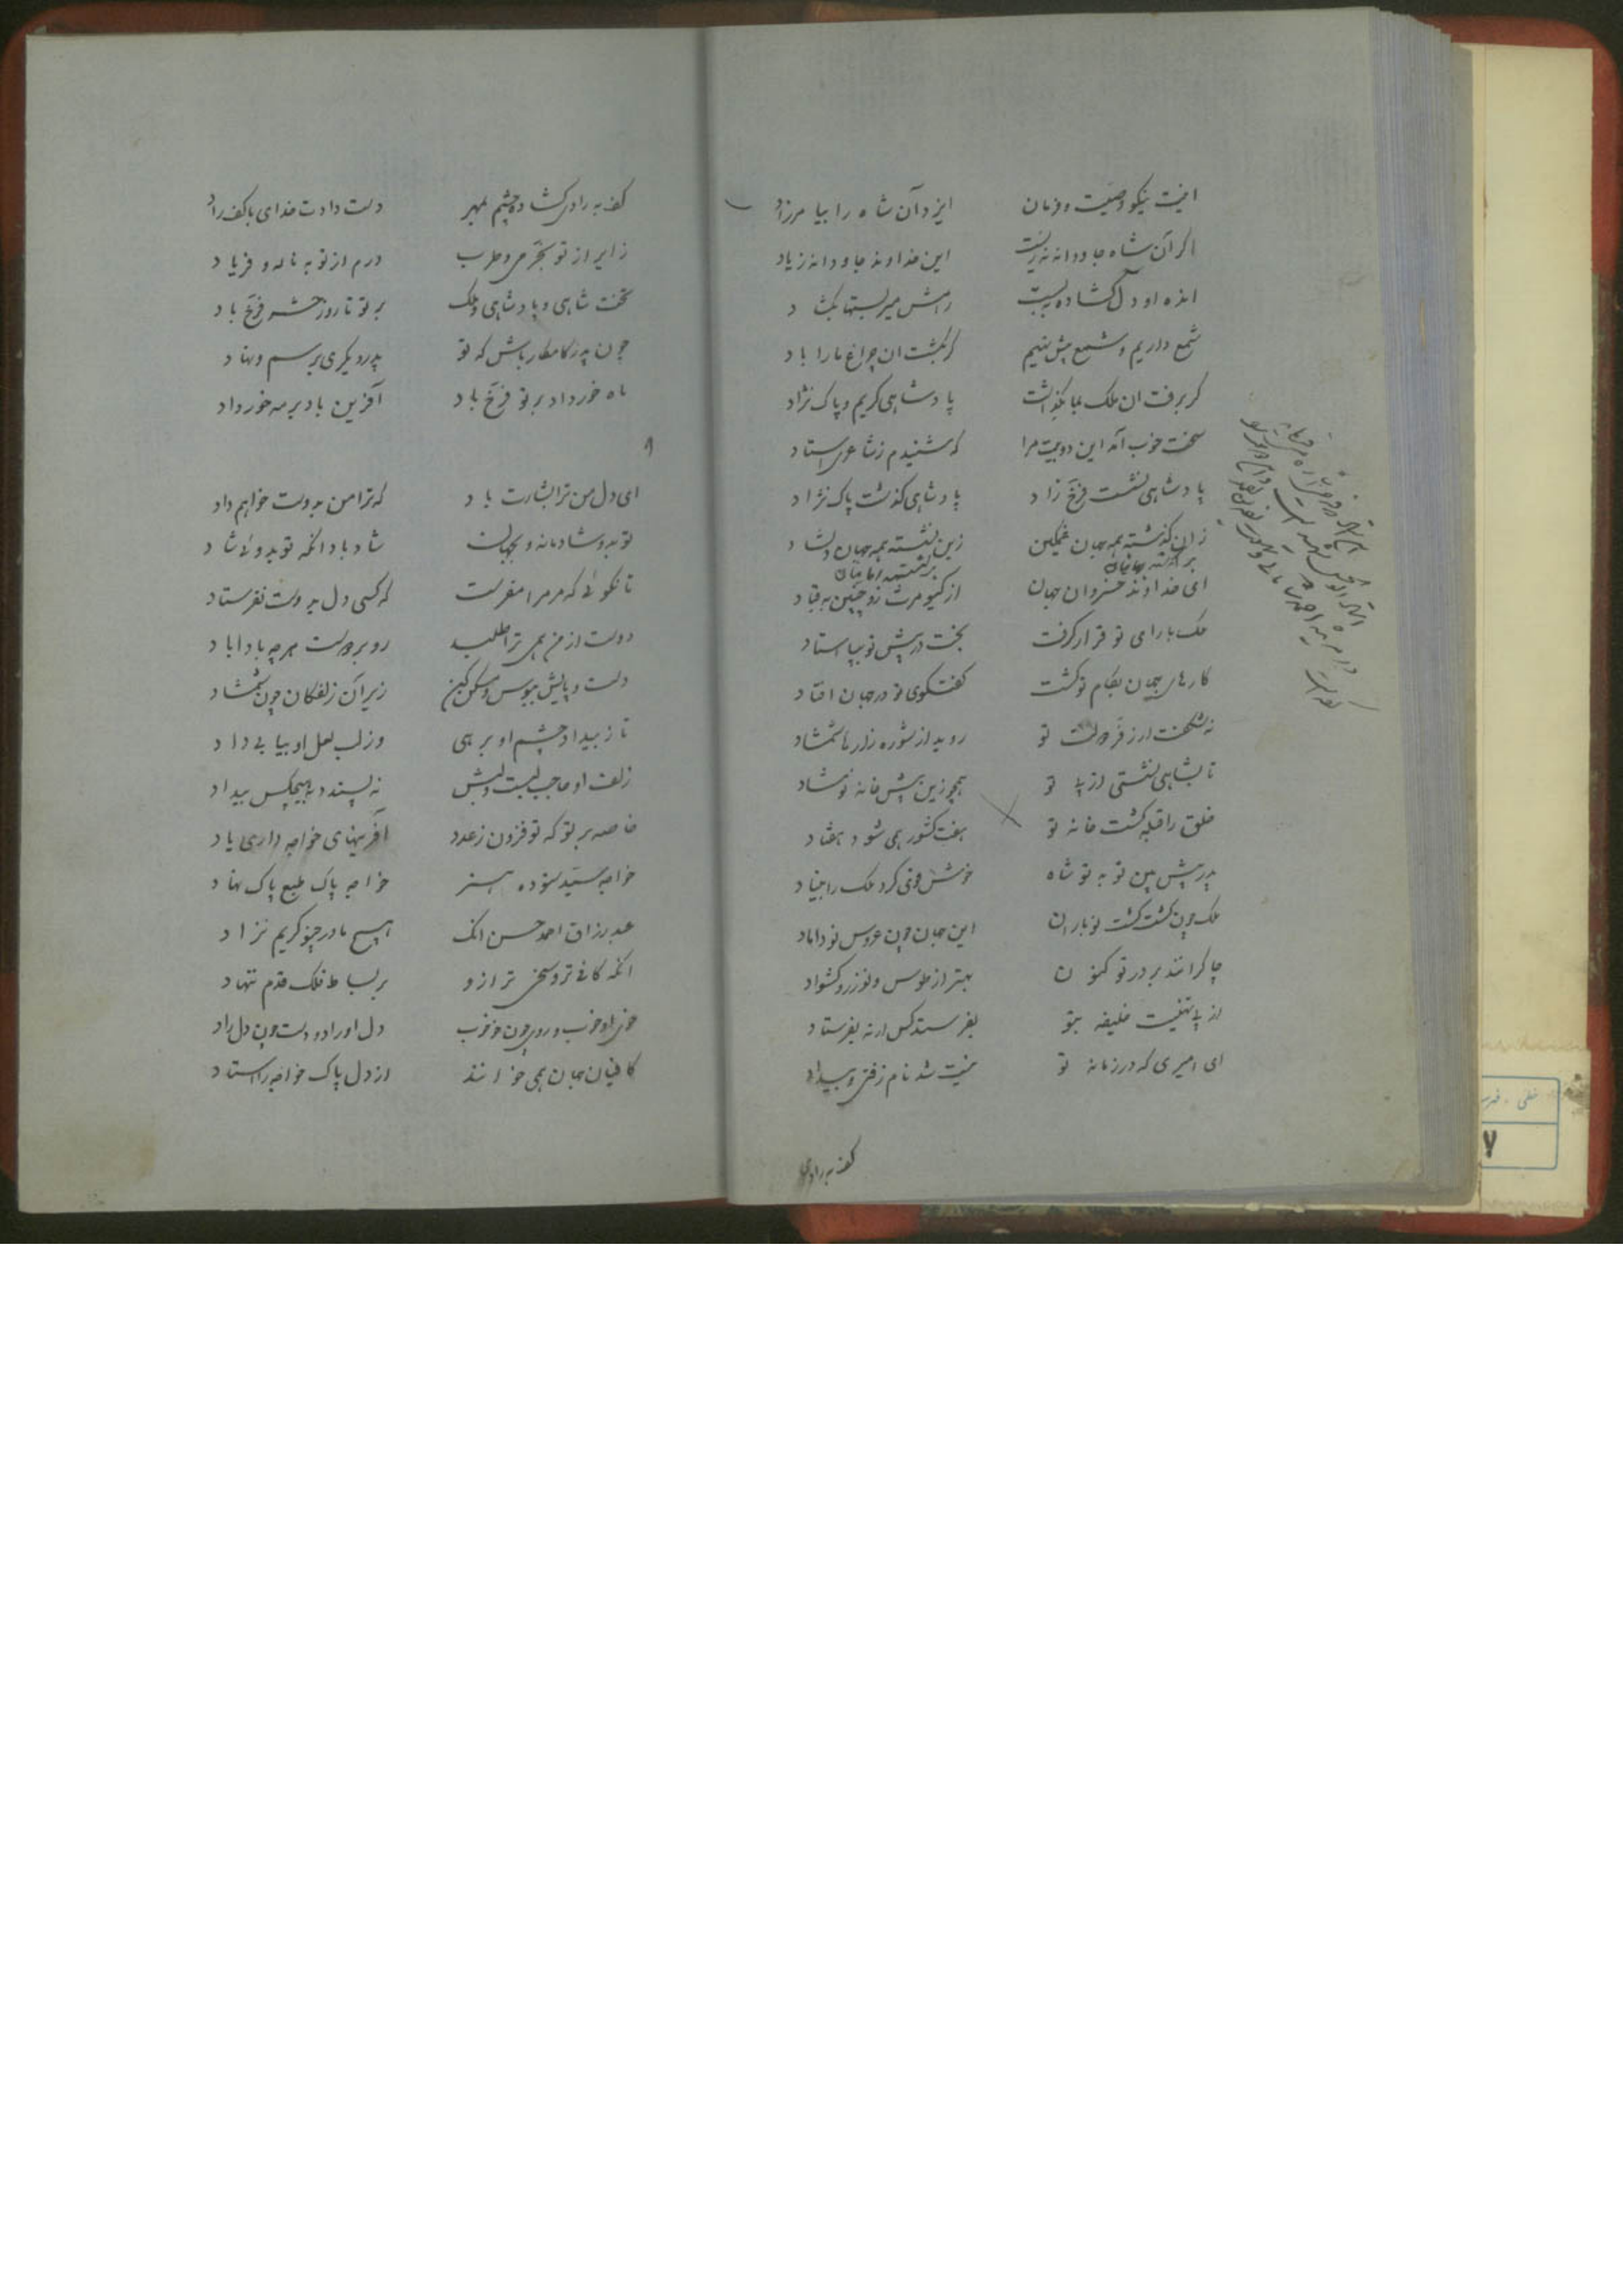 اینت نیکو وصیت و فرمان ایزد آن شاه را بیامرزاد
اگر آن شاه جاودانه نزیست این خداوند جاودانه زیاد
انده او دل گشاده ببست رامش میر بستها بگشاد
شمع داریم و شمع پیش نهیم گر بکشت ان چراغ ما را باد
گر برفت ان ملک بما بگذاشت پادشاهی کریم و پاک نژاد
سخت خوب آمد این دو بیت مرا که شنیدم ز شاعری استاد
پادشاهی گذشت پاک نژاد پادشاهی نشست فرخ زاد
زان گذشته همه جهان غمگین زین نشسته همه جهان دلشاد
برگذشته جهانیان برنشسته جهانیان
ای خداوند خسروان جهان از کیومرث زو چنین به قباد
ملک با رای تو قرار گرفت بخت در پیش تو بپا استاد
کارهای جهان بکام تو گشت گفتگوی تو در جهان افتاد
نه شگفت ار ز فر دولت تو روید از شوره زارها شمشاد
تا بشاهی نشستی از پی تو همچو زین پیش خانه نوشاد
خلق را قبله گشت خانه تو هفت کشور همی شود هفتاد
پدر پیش بین تو به تو شاه خوش قوی کرد ملک را بنیاد
ملک چون کشت گشت تو باران این جهان چون عروس تو داماد
چاکرانند بر در تو کنون بهتر از طوس و نوذر و کشواد
از پی تهنیت خلیفه بتو بفرستد کس ار نه بفرستاد
ای امیری که در زمانه تو نیست شد نام زفتی و بیداد
کف به رادی
کف به رادی گشاده چشم بمهر دست دادت خدای با کف راد
زایر از تو بخرمی و طرب درم از تو به ناله و فریاد
تخت شاهی و پادشاهی و ملک بر تو تا روز حشر فرخ باد
چون پدر کامکار باش که تو پدر دیگری برسم و نهاد
ماه خرداد بر تو فرخ باد آفرین باد بر مه خورداد
ای دل من ترا بشارت باد که ترا من بدوست خواهم داد
تو بدو شادمانه و بجهان شاد باد انکه تو بدوئی شاد
تا نگوئی که مر مرا مفرست که کسی دل بدوست نفرستاد
دوست از من همی ترا طلبد رو بر دوست هرچه بادا باد
دست و پایش ببوس و مسکن کن زیر آن زلفکان چون شمشاد
تا ز بیداد چشم او برهی وز لب لعل او بیابی داد
زلف او حاجب لبست و لبش نپسندد به هیچکس بیداد
خاصه بر تو که تو فزون ز عدد آفرینهای خواجه داری یاد
خواجه سید ستوده هنر خواجه پاک طبع پاک نهاد
عبد رزاق احمد حسن انک هیچ مادر چنو کریم نزاد
انکه کافی تر و سخی تر ازو بر بساط فلک قدم ننهاد
خوی او خوب و روی چون خو خوب دل او راد و دست چون دل راد
کافیان جهان همی خوانند از دل پاک خواجه را استاد
۷